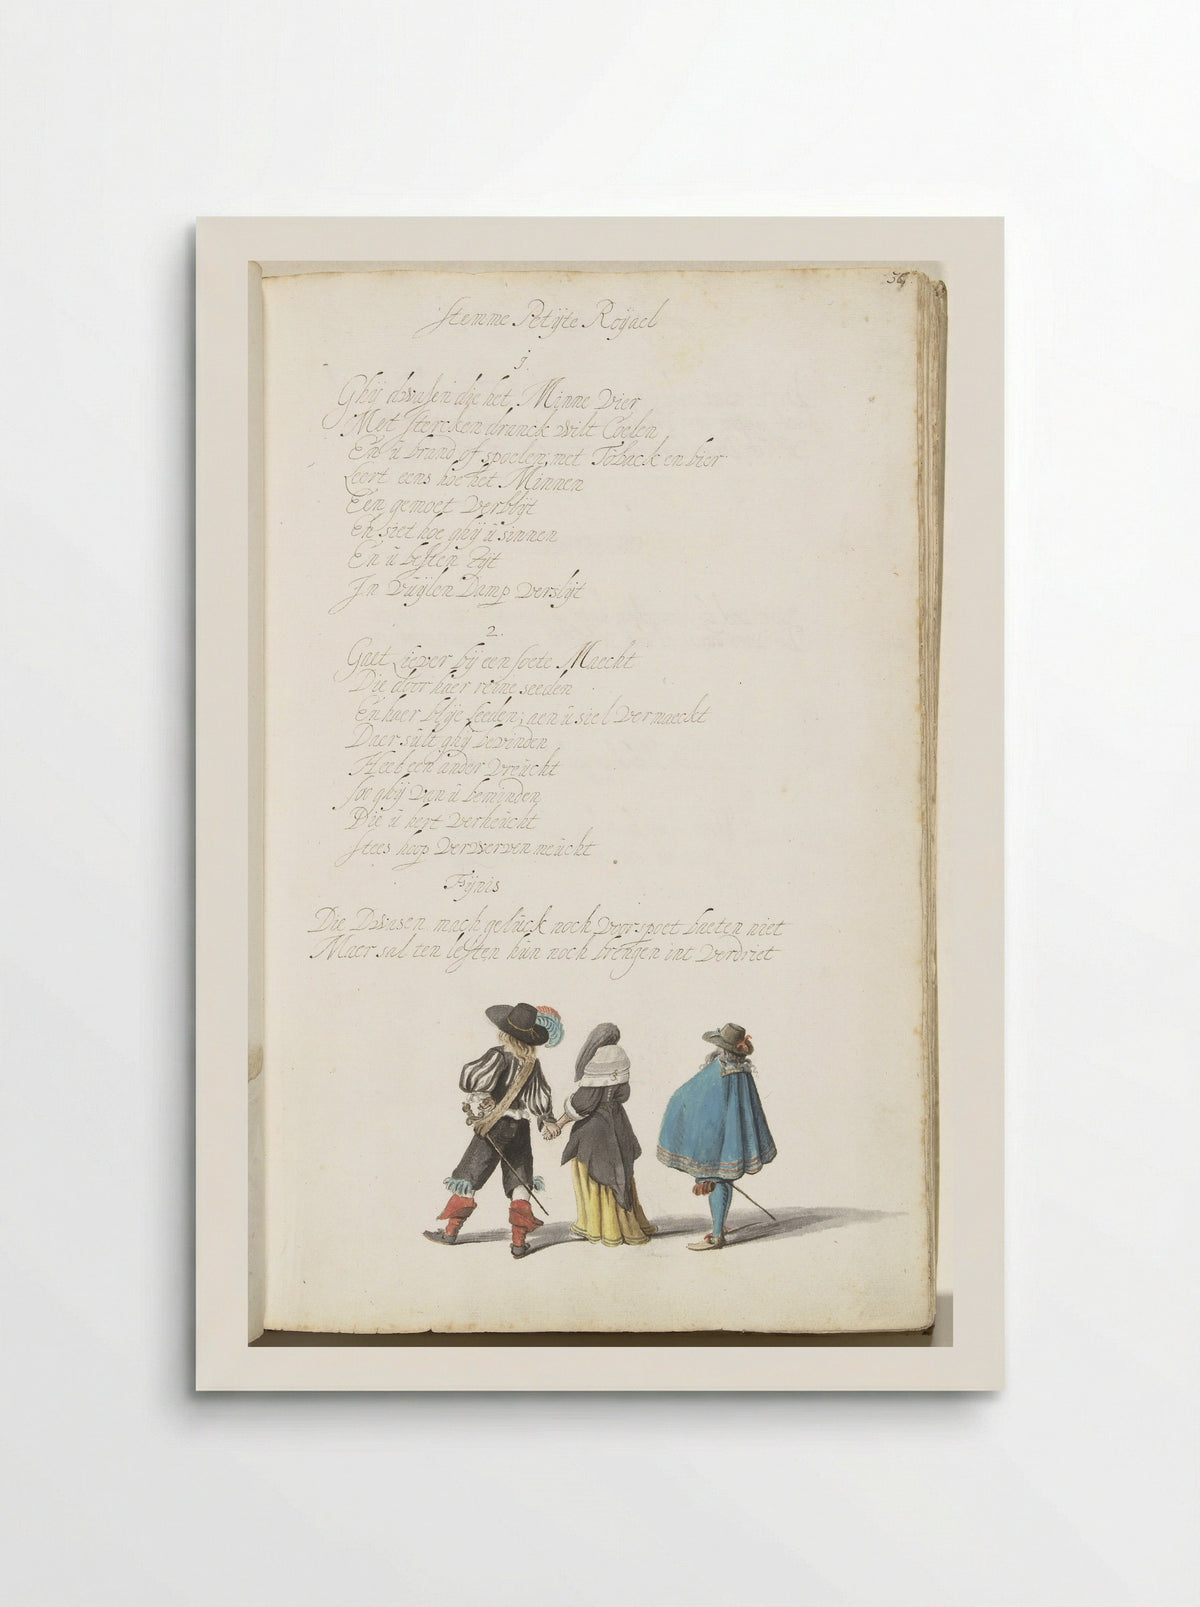 56
Stemme Petijte Roijael
1
Ghij dwasen die het Minne Vier
Met stercken dranck wilt Coelen
En ù brand of spoelen, met Toback en bier
Leert eens hoe het Minnen
Een gemoet verblijt
En siet hoe ghij ù sinnen
En ù besten Tijt
In Vùijlen Damp verslijt
2.
Gaet Liever bij een soete Maecht
Die door haer reijne seeden
En haer blije leeden, aen ù siel vermaeckt
Daer sùlt ghij bevinden
Heel een ander vreùcht
soo ghij van ù beminden
Die ù hert verheùcht
stees hoop verwerven meùcht
Fijnis
Die Dwasen mach gelùck noch voorspoet baeten niet
Maer sal ten lesten hùn noch brengen int verdriet